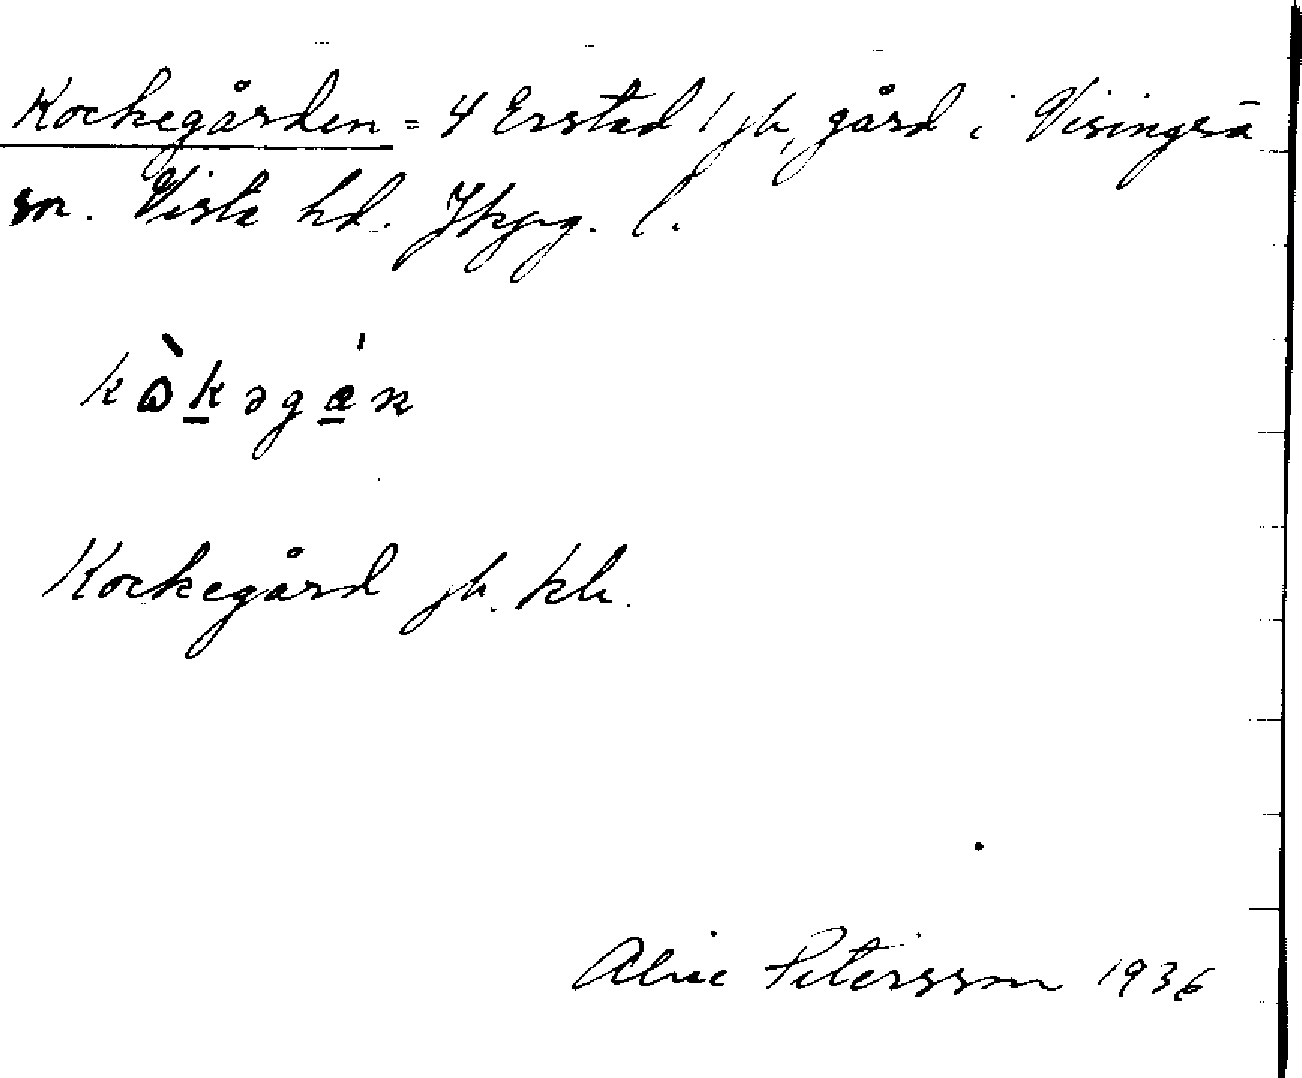 Kockegården = 4 Erstad 1 jb, gård i Visingsö
sn. Vista hd. Jkpg. l.
kòkəgán
Kockegård jb. kb.
Alice Petersson 1936